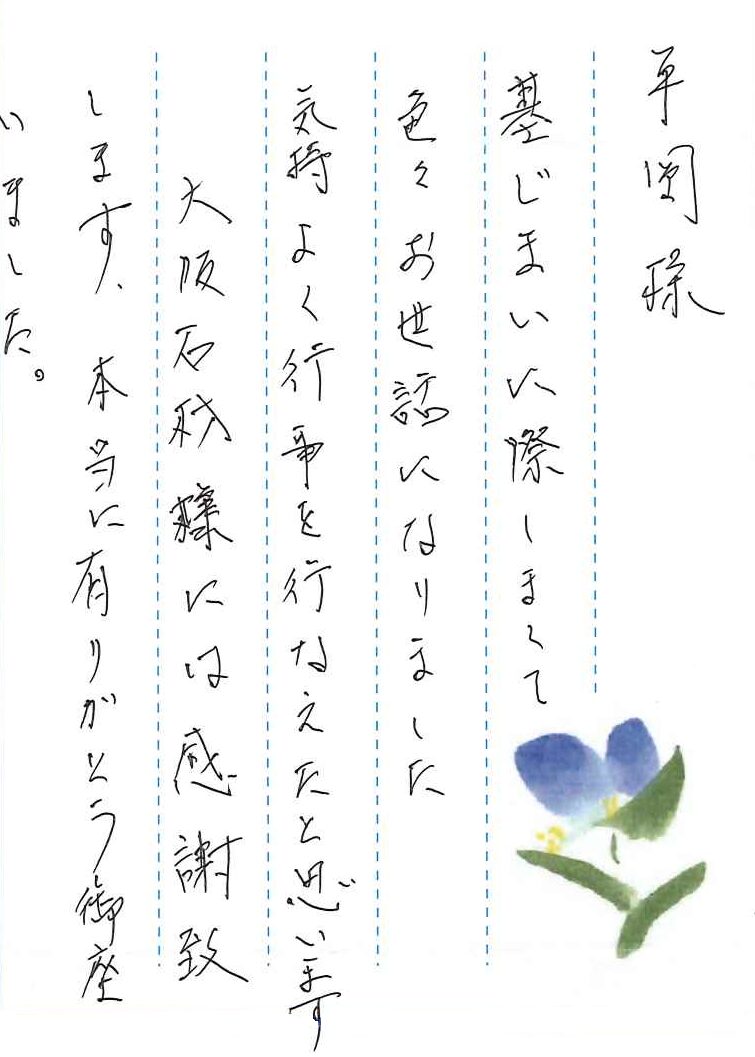 平岡様
墓じまいに際しまして
色々お世話になりました
気持よく行事を行なえたと思います
大阪石材様には感謝致
します、本当に有りがとう御座
いました。